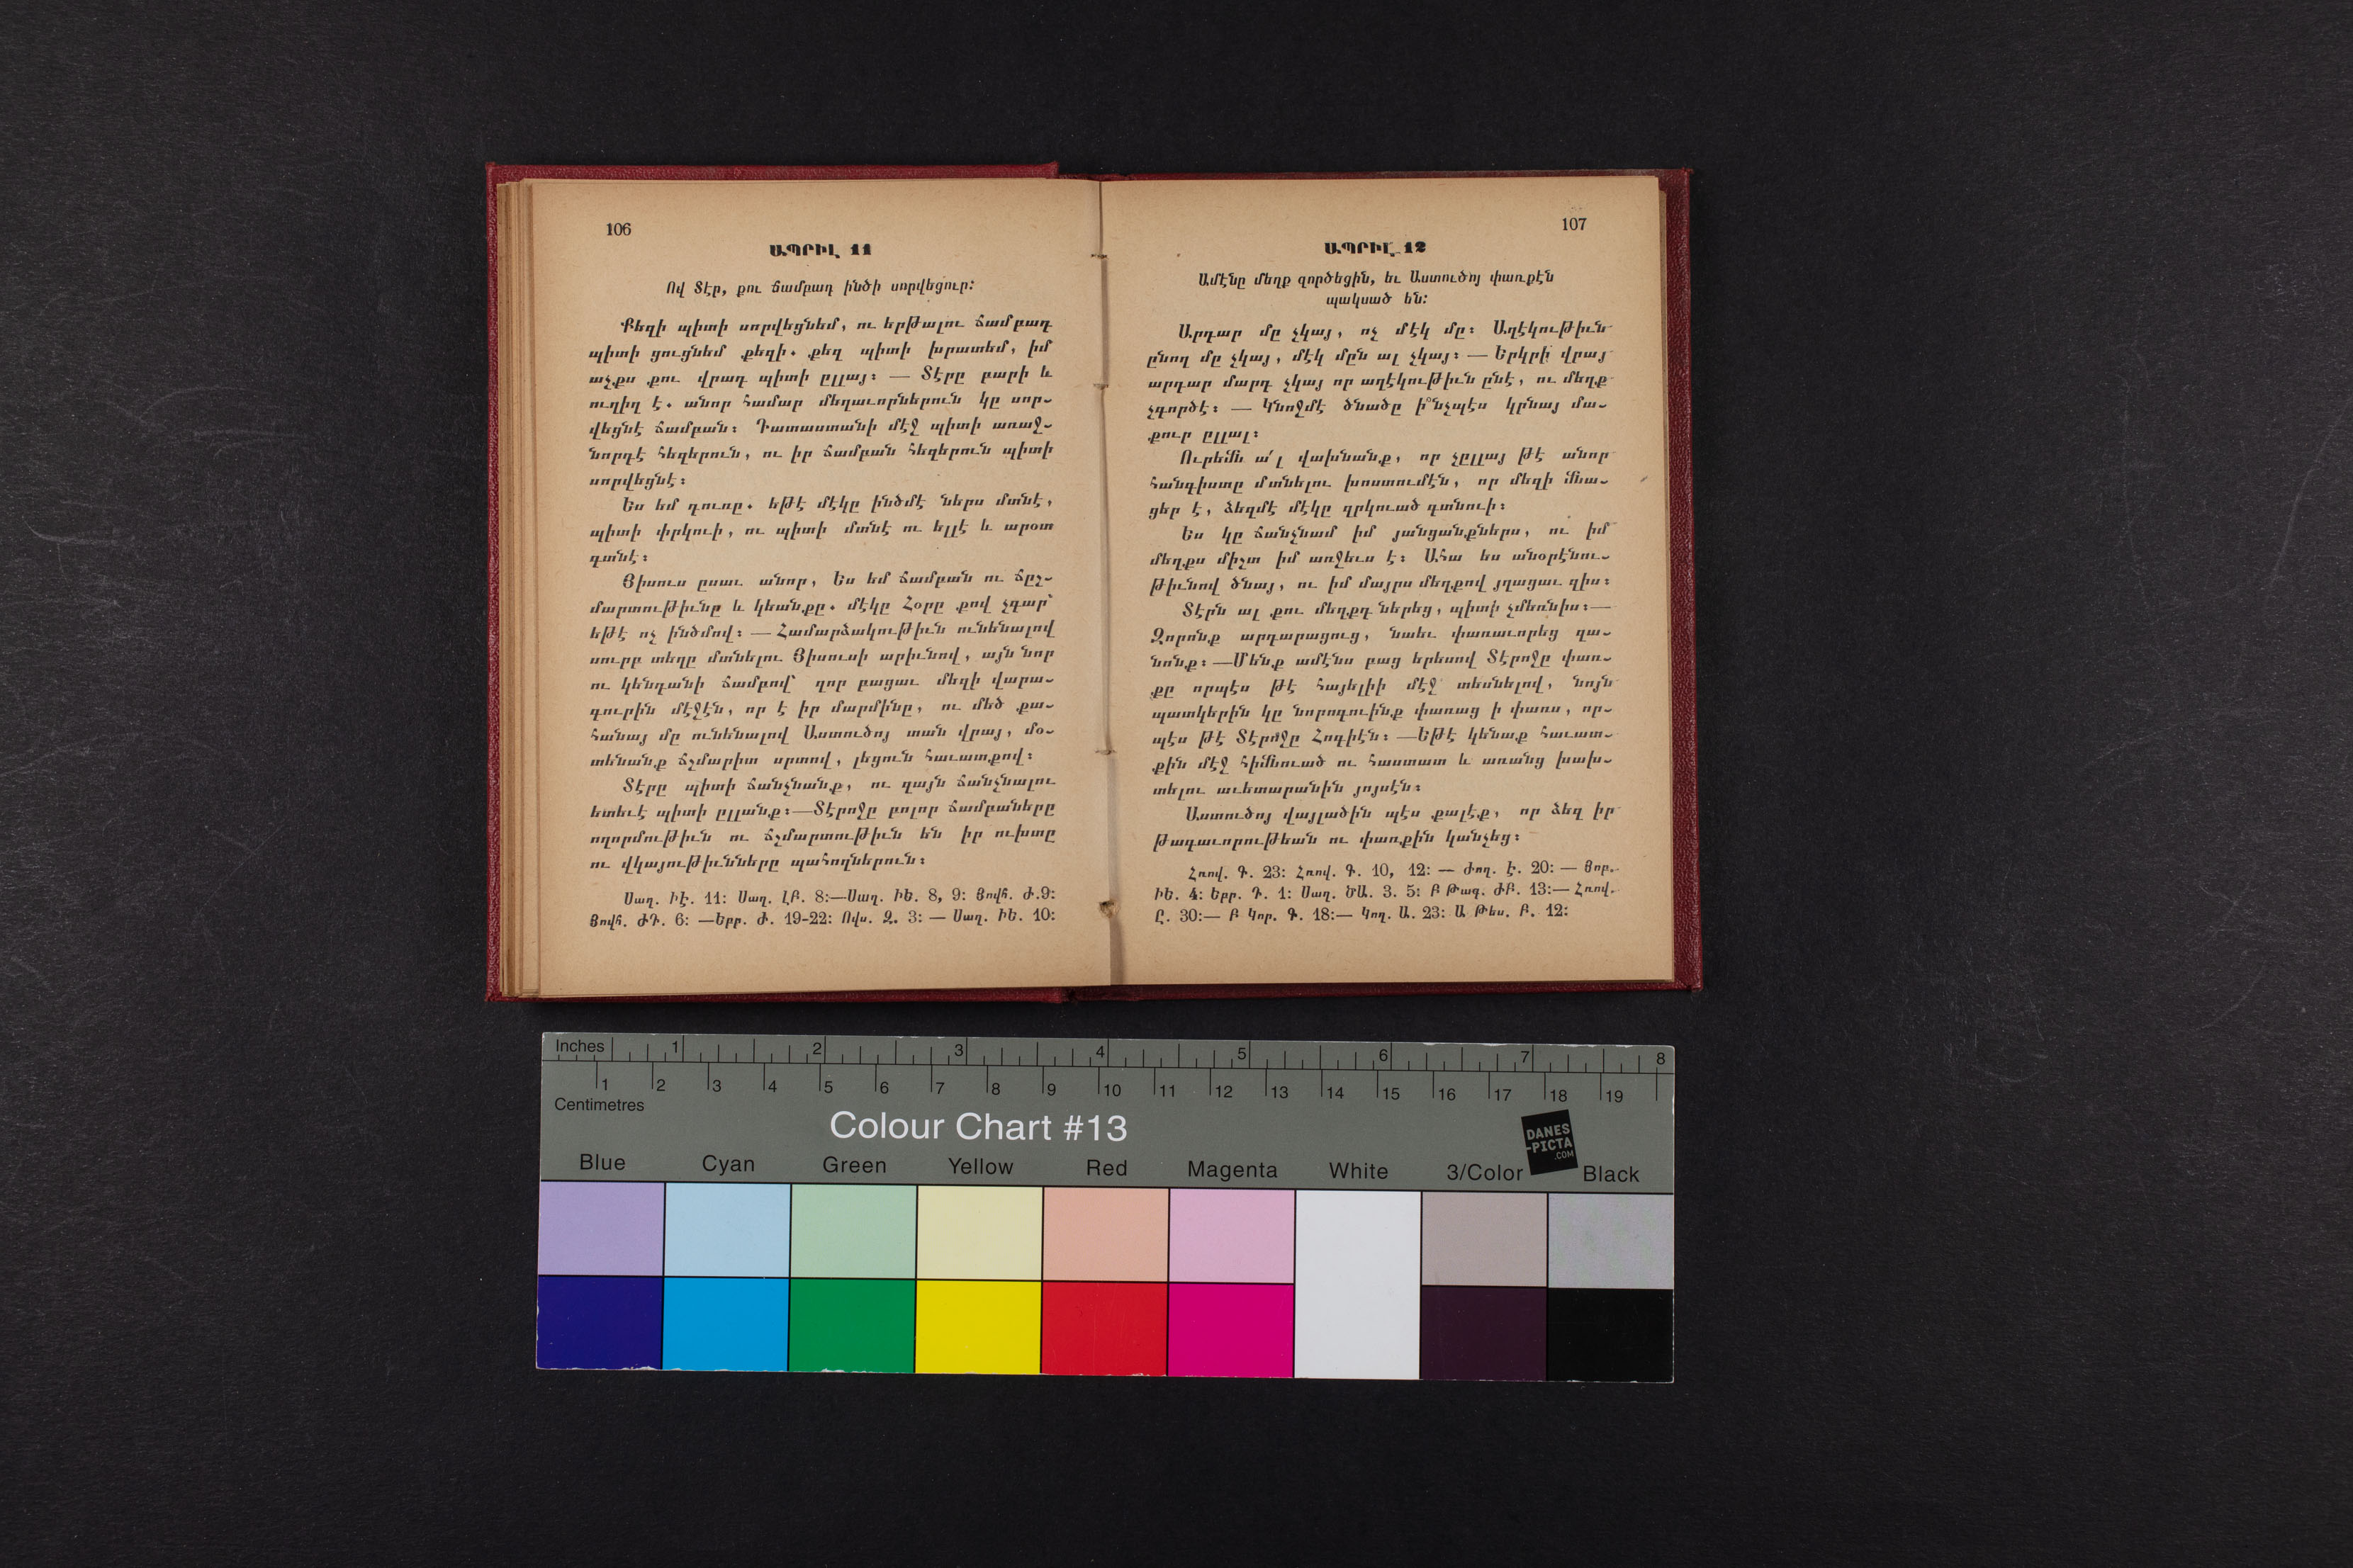 106
ԱՊՐԻԼ 11
Ով Տէր, քու ճամբադ ինծի սորվեցուր։
Քեզի պիտի սորվեցնեմ, ու երթալու ճամբադ
պիտի ցուցնեմ քեզի. քեզ պիտի խրատեմ, իմ
աչքս քու վրադ պիտի ըլլայ։ — Տէրը բարի և
ուղիղ է. անոր համար մեղաւորներուն կը սոր-
վեցնէ ճամբան։ Դատաստանի մէջ պիտի առաջ-
նորդէ հեզերուն, ու իր ճամբան հեզերուն պիտի
սորվեցնէ։
Ես եմ դուռը. եթէ մէկը ինծմէ ներս մտնէ,
պիտի փրկուի, ու պիտի մտնէ ու ելլէ և արօտ
գտնէ։
Յիսուս ըսաւ անոր, Ես եմ ճամբան ու ճըշ-
մարտութիւնը և կեանքը. մէկը Հօրը քով չգար՝
եթէ ոչ ինծմով։ — Համարձակութիւն ունենալով
սուրբ տեղը մտնելու Յիսուսի արիւնով, այն նոր
ու կենդանի ճամբով՝ զոր բացաւ մեզի վարա-
գուրին մէջէն, որ է իր մարմինը, ու մեծ քա-
հանայ մը ունենալով Աստուծոյ տան վրայ, մօ-
տենանք ճշմարիտ սրտով, լեցուն հաւատքով։
Տէրը պիտի ճանչնանք, ու զայն ճանչնալու
ետեւէ պիտի ըլլանք։—Տէրոջը բոլոր ճամբաները
ողորմութիւն ու ճշմարտութիւն են իր ուխտը
ու վկայութիւնները պահողներուն։
Սաղ. ԻԷ. 11։ Սաղ. ԼԲ. 8։—Սաղ. ԻԵ. 8, 9։ Յովհ. Ժ.9։
Յովհ. ԺԴ. 6։ —Եբր. Ժ. 19-22։ Ովս. Զ. 3։ — Սաղ. ԻԵ. 10։
107
ԱՊՐԻԼ 12
Ամէնը մեղք գործեցին, եւ Աստուծոյ փառքէն
պակսած են։
Արդար մը չկայ, ոչ մէկ մը։ Աղէկութիւն
ընող մը չկայ, մէկ մըն ալ չկայ։ — Երկրի վրայ
արդար մարդ չկայ որ աղէկութիւն ընէ, ու մեղք
չգործէ։ — Կնոջմէ ծնածը ի՞նչպէս կրնայ մա-
քուր ըլլալ։
Ուրեմն ա՛լ վախնանք, որ չըլլայ թէ անոր
հանգիստը մտնելու խոստումէն, որ մեզի մնա-
ցեր է, ձեզմէ մէկը զրկուած գտնուի։
Ես կը ճանչնամ իմ յանցանքներս, ու իմ
մեղքս միշտ իմ առջեւս է։ Ահա ես անօրէնու-
թիւնով ծնայ, ու իմ մայրս մեղքով յղացաւ զիս։
Տէրն ալ քու մեղքդ ներեց, պիտի չմեռնիս։—
Զորոնք արդարացուց, նաեւ փառաւորեց զա-
նոնք։ —Մենք ամէնս բաց երեսով Տէրոջը փառ-
քը որպէս թէ հայելիի մէջ տեսնելով, նոյն
պատկերին կը նորոգուինք փառաց ի փառս, որ-
պէս թէ Տէրոջը Հոգիէն։ —Եթէ կենաք հաւատ-
քին մէջ հիմնուած ու հաստատ և առանց խախ-
տելու աւետարանին յոյսէն։
Աստուծոյ վայլածին պէս քալէք, որ ձեզ իր
թագաւորութեան ու փառքին կանչեց։
Հռով. Գ. 23։ Հռով. Գ. 10, 12։ — Ժող. Է. 20։ — Յոբ.
ԻԵ. 4։ Եբր. Դ. 1։ Սաղ. ԾԱ. 3. 5։ Բ Թագ. ԺԲ. 13։— Հռով.
Ը. 30։— Բ Կոր. Գ. 18։— Կող. Ա. 23։ Ա Թես. Բ. 12։
Inches 1 2 3 4 5 6 7 8
1 2 3 4 5 6 7 8 9 10 11 12 13 14 15 16 17 18 19
Centimetres
Colour Chart #13
DANES
-PICTA
.COM
Blue Cyan Green Yellow Red Magenta White 3/Color Black